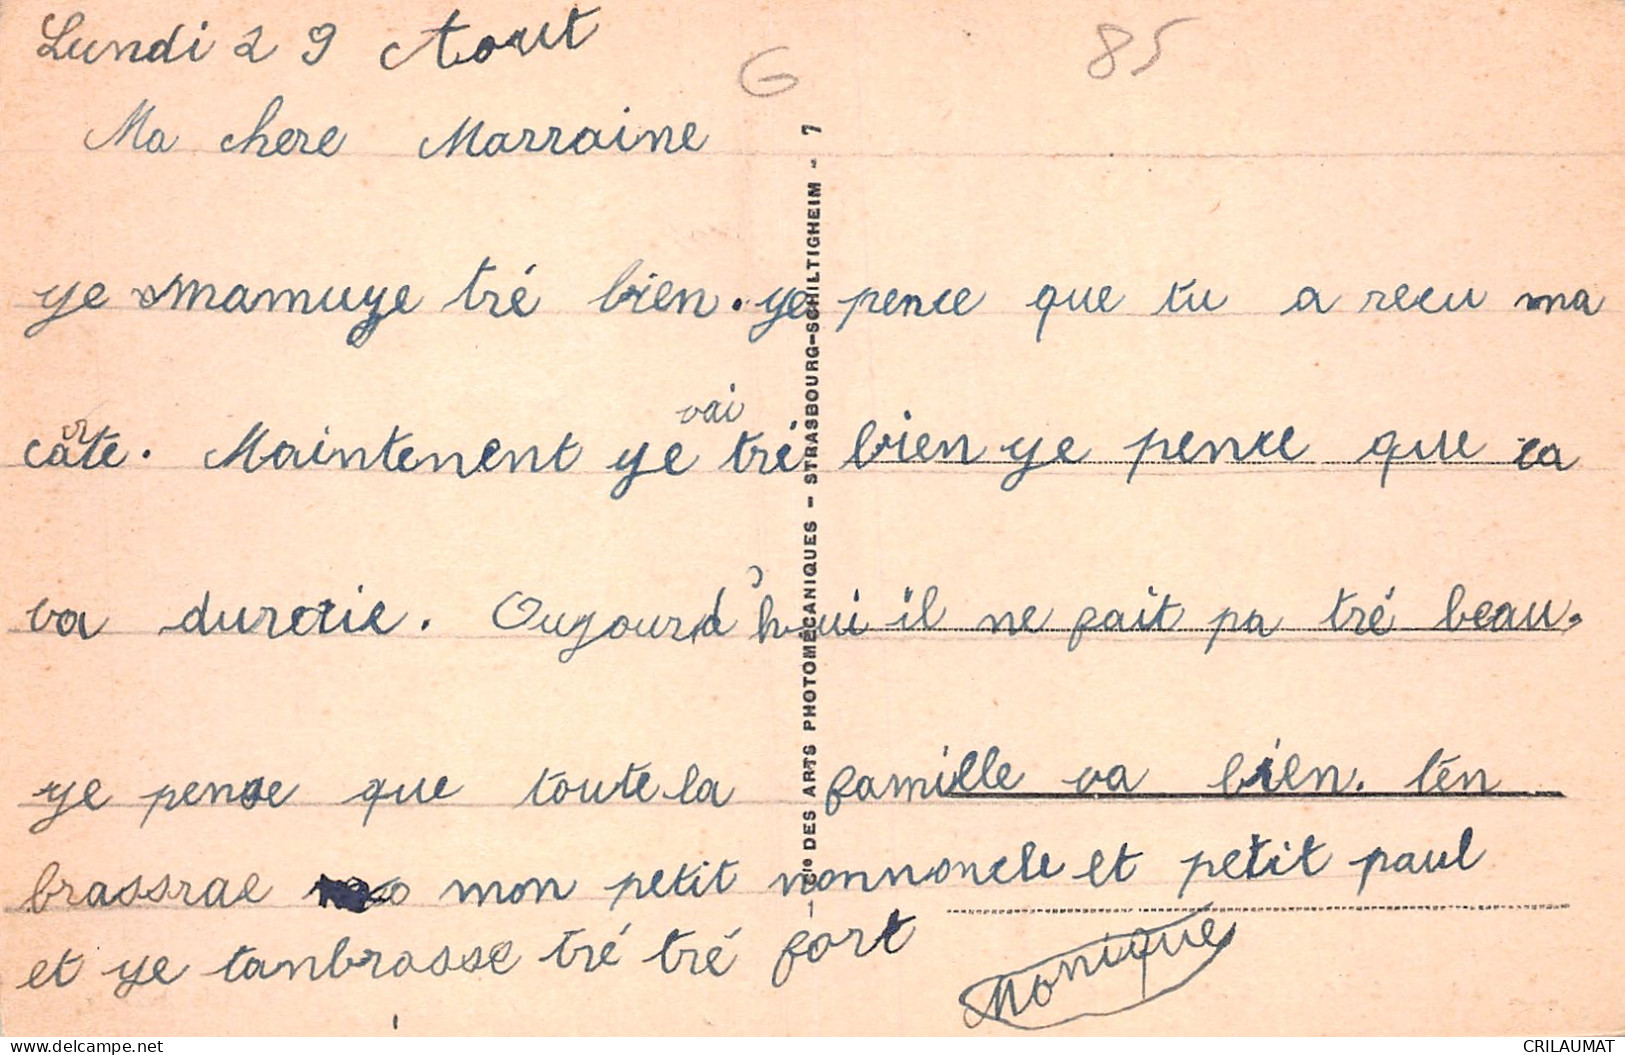 Lundi 29 Aout
G
85
Ma chere Marraine
ye mamuye tré bien. ye pence que tu a recu ma
cate. Maintenent ye vai tré bien ye pence que ca
va duraie. Ouyourd'hui il ne fait pa tré beau.
ye pense que toute la famille va bien. tén
brassrae mon petit nonnoncle et petit paul
et ye tanbrasse tré tré fort
Monique
Cie DES ARTS PHOTOMÉCANIQUES - STRASBOURG-SCHILTIGHEIM - 7
delcampe.net
CRILAUMAT